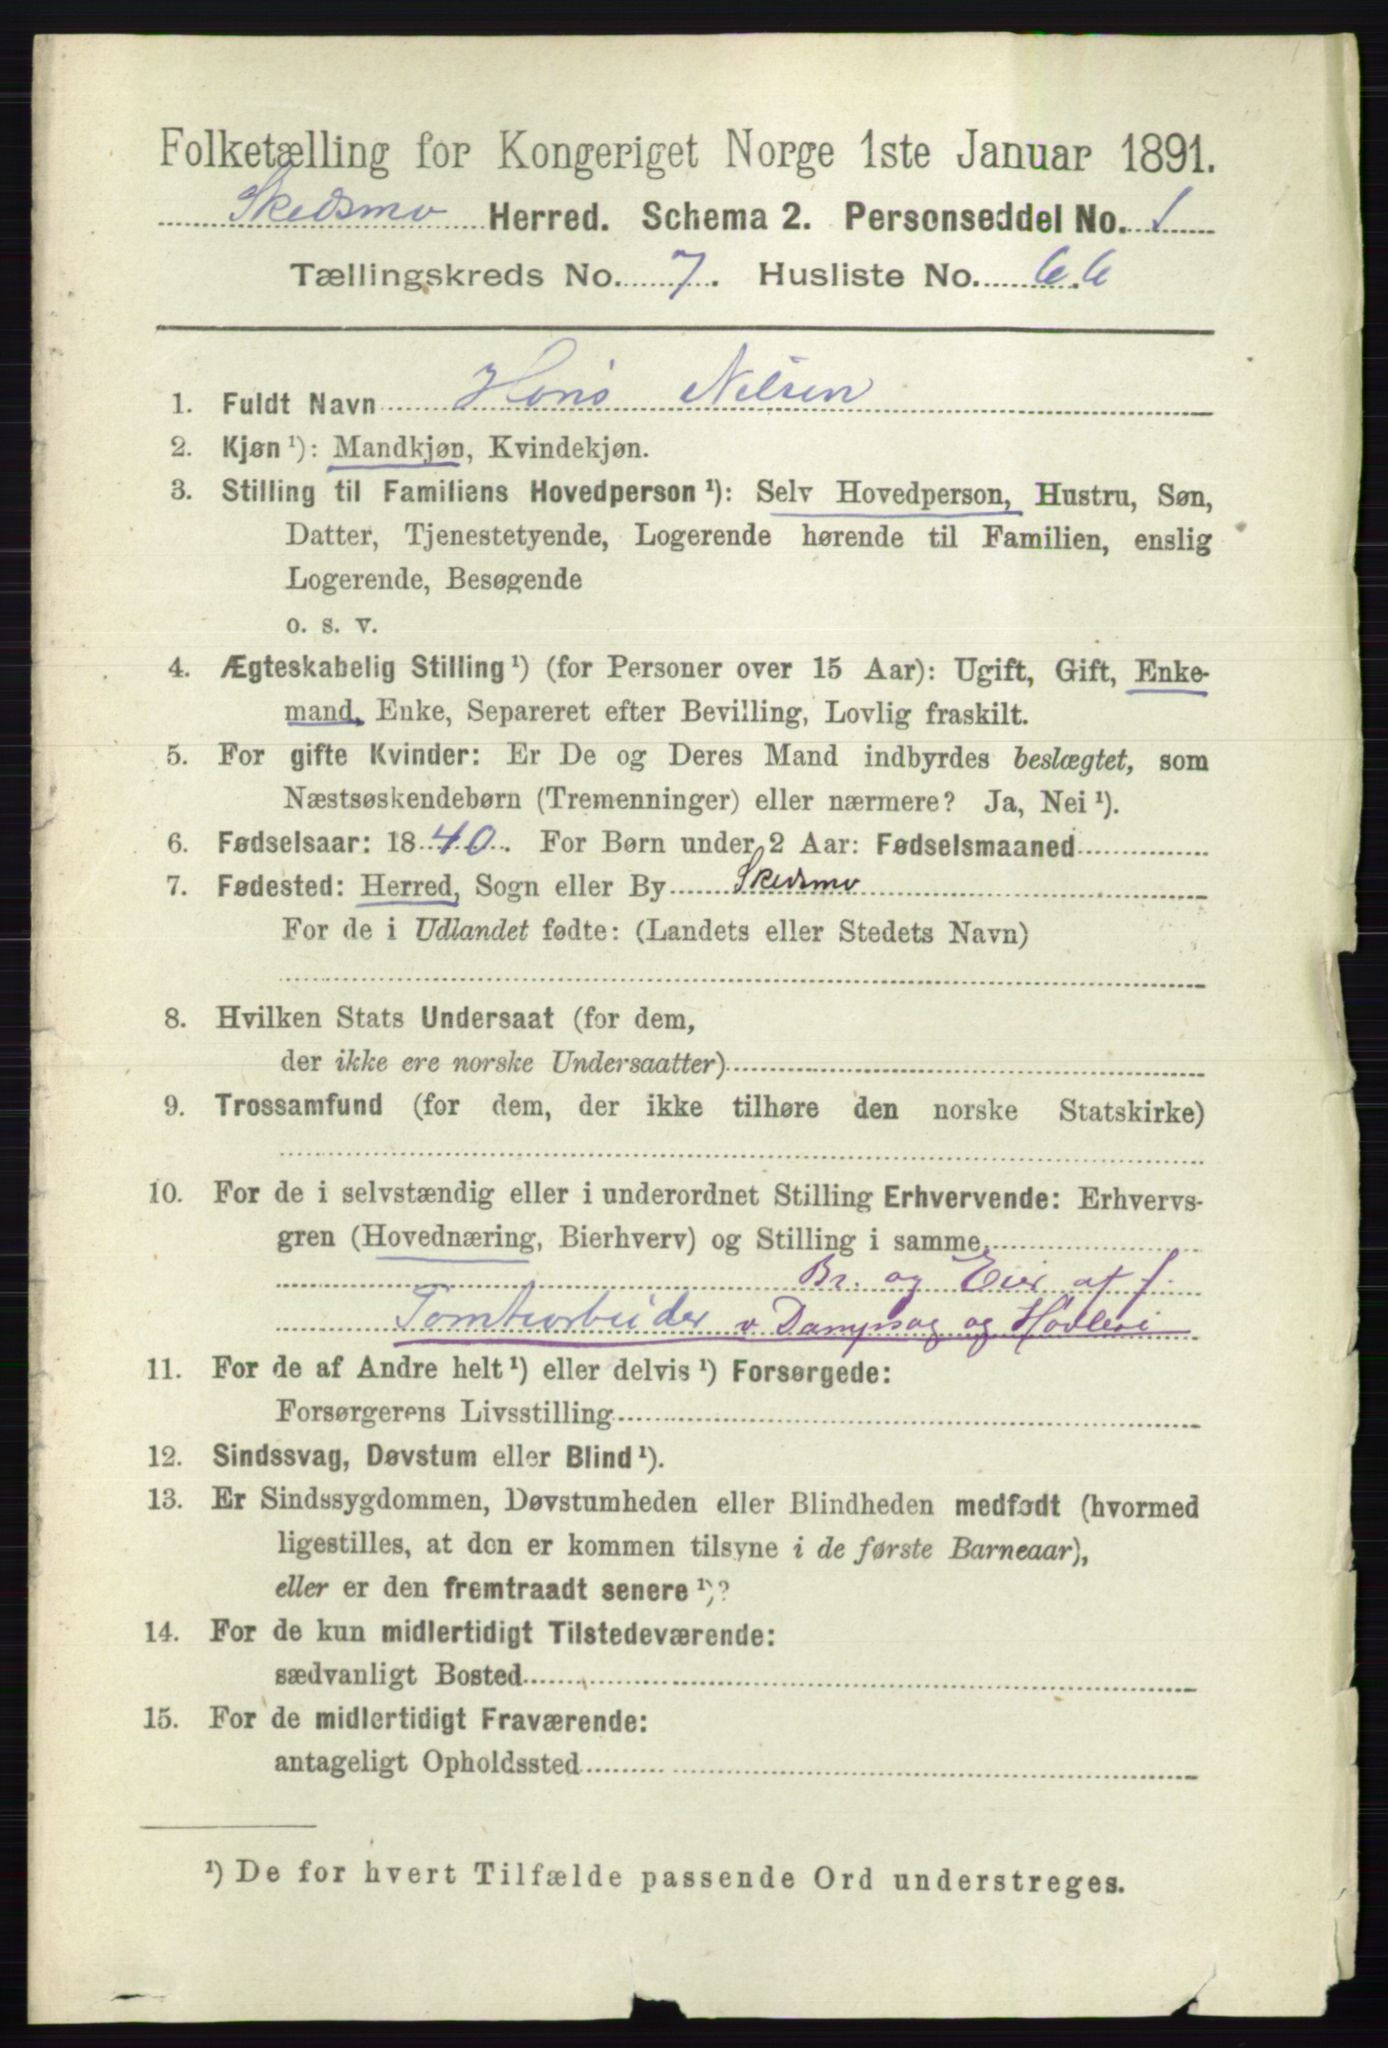 Folketælling for Kongeriget Norge 1ste Januar 1891.
Skedsmo Herred. Schema 2. Personseddel No. 1
Tællingskreds No. 7. Husliste No. 66
1. Fuldt Navn Hans Nilsen
2. Kjøn ¹): Mandkjøn, Kvindekjøn.
3. Stilling til Familiens Hovedperson ¹): Selv Hovedperson, Hustru, Søn,
Datter, Tjenestetyende, Logerende hørende til Familien, enslig
Logerende, Besøgende
o. s. v.
4. Ægteskabelig Stilling ¹) (for Personer over 15 Aar): Ugift, Gift, Enke-
mand, Enke, Separeret efter Bevilling, Lovlig fraskilt.
5. For gifte Kvinder: Er De og Deres Mand indbyrdes beslægtet, som
Næstsøskendebørn (Tremenninger) eller nærmere? Ja, Nei ¹).
6. Fødselsaar: 1840. For Børn under 2 Aar: Fødselsmaaned
7. Fødested: Herred, Sogn eller By Skedsmo
For de i Udlandet fødte: (Landets eller Stedets Navn)
8. Hvilken Stats Undersaat (for dem,
der ikke ere norske Undersaatter)
9. Trossamfund (for dem, der ikke tilhøre den norske Statskirke)
10. For de i selvstændig eller i underordnet Stilling Erhvervende: Erhvervs-
gren (Hovednæring, Bierhverv) og Stilling i samme
Br. og Eier af f.
Tomtearbeider v Dampsag og Høvleri
11. For de af Andre helt ¹) eller delvis ¹) Forsørgede:
Forsørgerens Livsstilling
12. Sindssvag, Døvstum eller Blind ¹).
13. Er Sindssygdommen, Døvstumheden eller Blindheden medfødt (hvormed
ligestilles, at den er kommen tilsyne i de første Barneaar),
eller er den fremtraadt senere ¹)?
14. For de kun midlertidigt Tilstedeværende:
sædvanligt Bosted
15. For de midlertidigt Fraværende:
antageligt Opholdssted
¹) De for hvert Tilfælde passende Ord understreges.